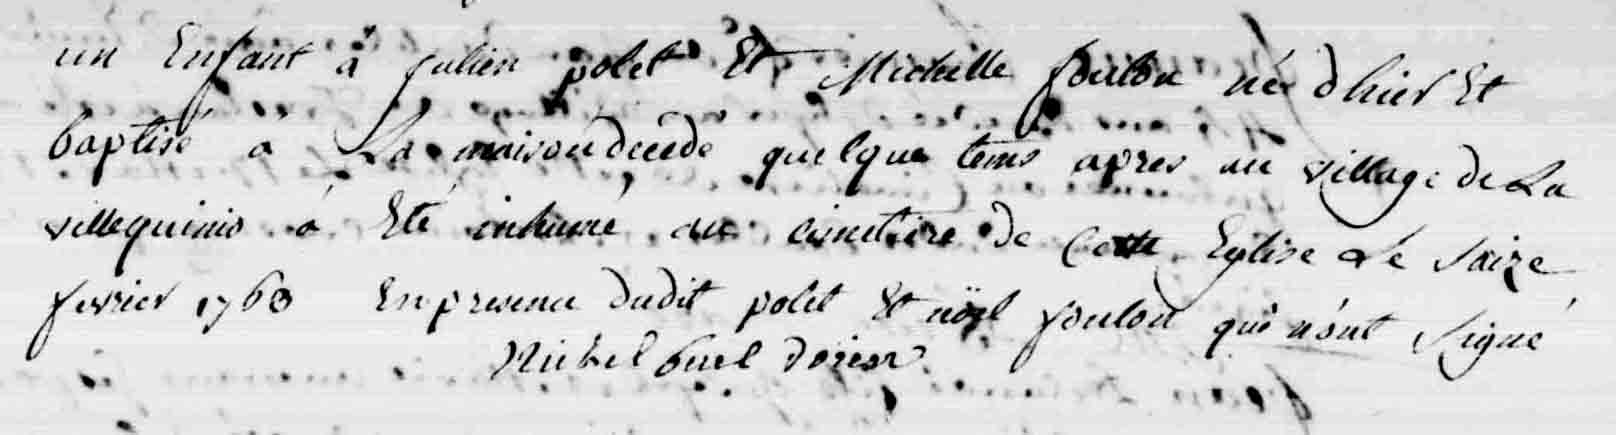 un Enfant à Julien polet Et Michelle foulon né d'hier Et
baptisé à La maison decedé quelque tems apres au village de La
villequinio à Eté inhumé au cimetiere de Cette Eglise Le saize
fevrier 1768 En presence dudit polet Et noël foulon qui n'ont signé
Michel buel